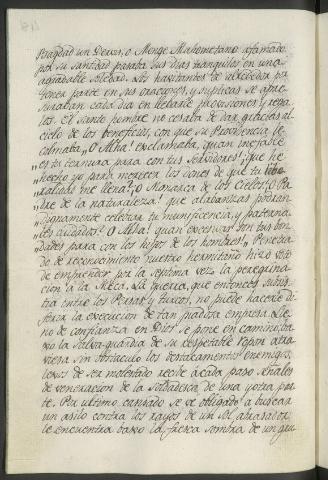 Bagdad un Dervis, o Monge Mahometano afamado
por su santidad pasaba sus dias tranquilos en una
agradable soledad. Los habitantes de alrededor pa
tener parte en sus oraciones, y suplicas se apre
suraban cada dia en llevarle provisiones y rega
los. El santo hombre no cesaba de dar gracias al
cielo de los beneficios, con que su Providencia le
colmaba,, O Alha! exclamaba, quan inefable
,,es tu ternura para con tus servidores! que he
,,hecho yo para merecer los dones de que tu libe
,,ralidad me llena! O Monarca de los Cielos! O Pa
,,dre de la naturaleza! que alabanzas podran
,,dignamente celebrar tu munificencia, y paterna
,,les cuidados! O Alha! quan excesivas son tus bon
,,dades para con los hijos de los hombres!,, Penetra
do de reconocimiento nuestro hermitaño hizo voto
de emprender por la septima vez la peregrina
cion a la Meca. La guerra, que entonces subsis
tia entre los Persas y turcos, no puede hacerle di
ferir la execucion de tan piadosa empresa. Lle
no de confianza en Dios se pone en camino, ba
xo la salva-guardia de su respetable ropon atra
viesa sin obstaculo los destacamentos enemigos,
lexos de ser molestado recibe a cada paso señales
de veneracion de la Soldadesca de una y otra par
te. Por ultimo cansado se ve obligado a buscar
un asilo contra los rayos de un sol abrasador,
le encuentra baxo la fresca sombra de un gru